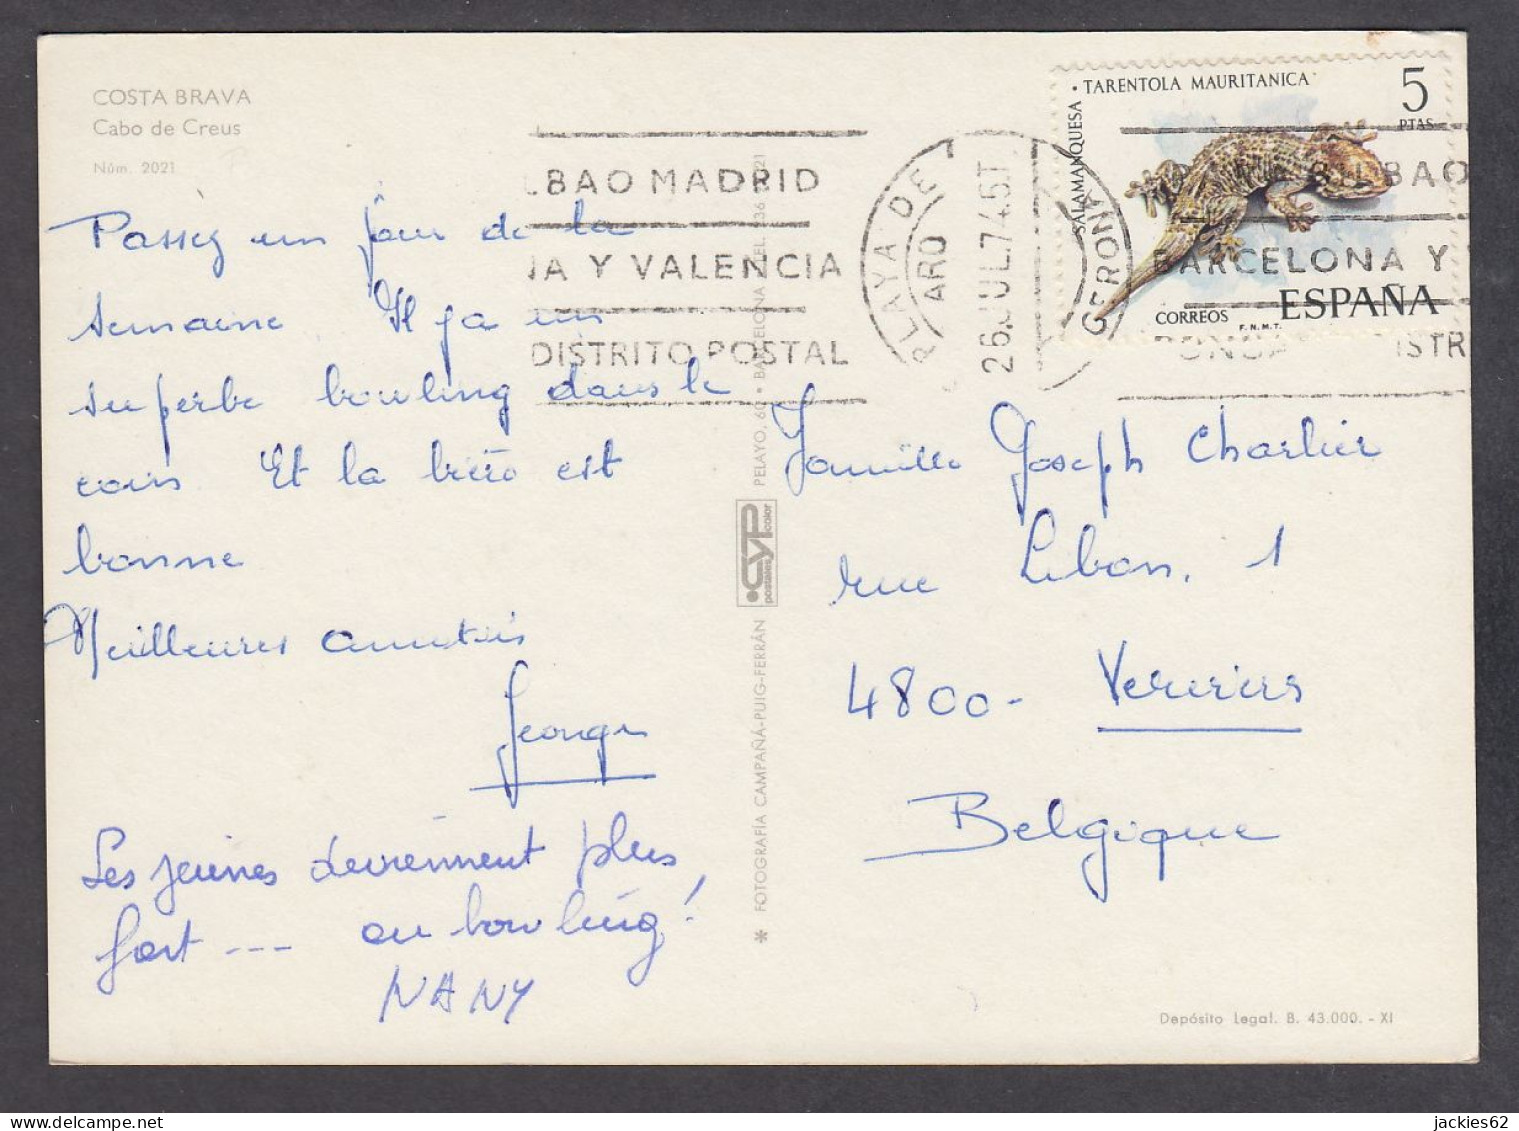 COSTA BRAVA
Cabo de Creus
Núm. 2021
Passez un jour de la
semaine Il y a un
superbe bowling dans le
coin Et la bière est
bonne
Meilleures amitiés
Georges
Les jeunes deviennent plus
fort --- au bowling!
NANY
LBAO MADRID
NA Y VALENCIA
DISTRITO POSTAL
PLAYA DE ARO
GERONA
26.JUL.74.5T
SALAMANQUESA • TARENTOLA MAURITANICA
5
PTAS
BILBAO
BARCELONA Y
PONGA ISTR
CORREOS ESPAÑA
F.N.M.T.
Famille Joseph Charlier
rue Liban, 1
4800 - Verviers
Belgique
* FOTOGRAFÍA CAMPAÑÁ-PUIG-FERRÁN
CYP
postales color
PELAYO, 60 • BARCELONA
Depósito Legal. B. 43.000. - XI
jackies62